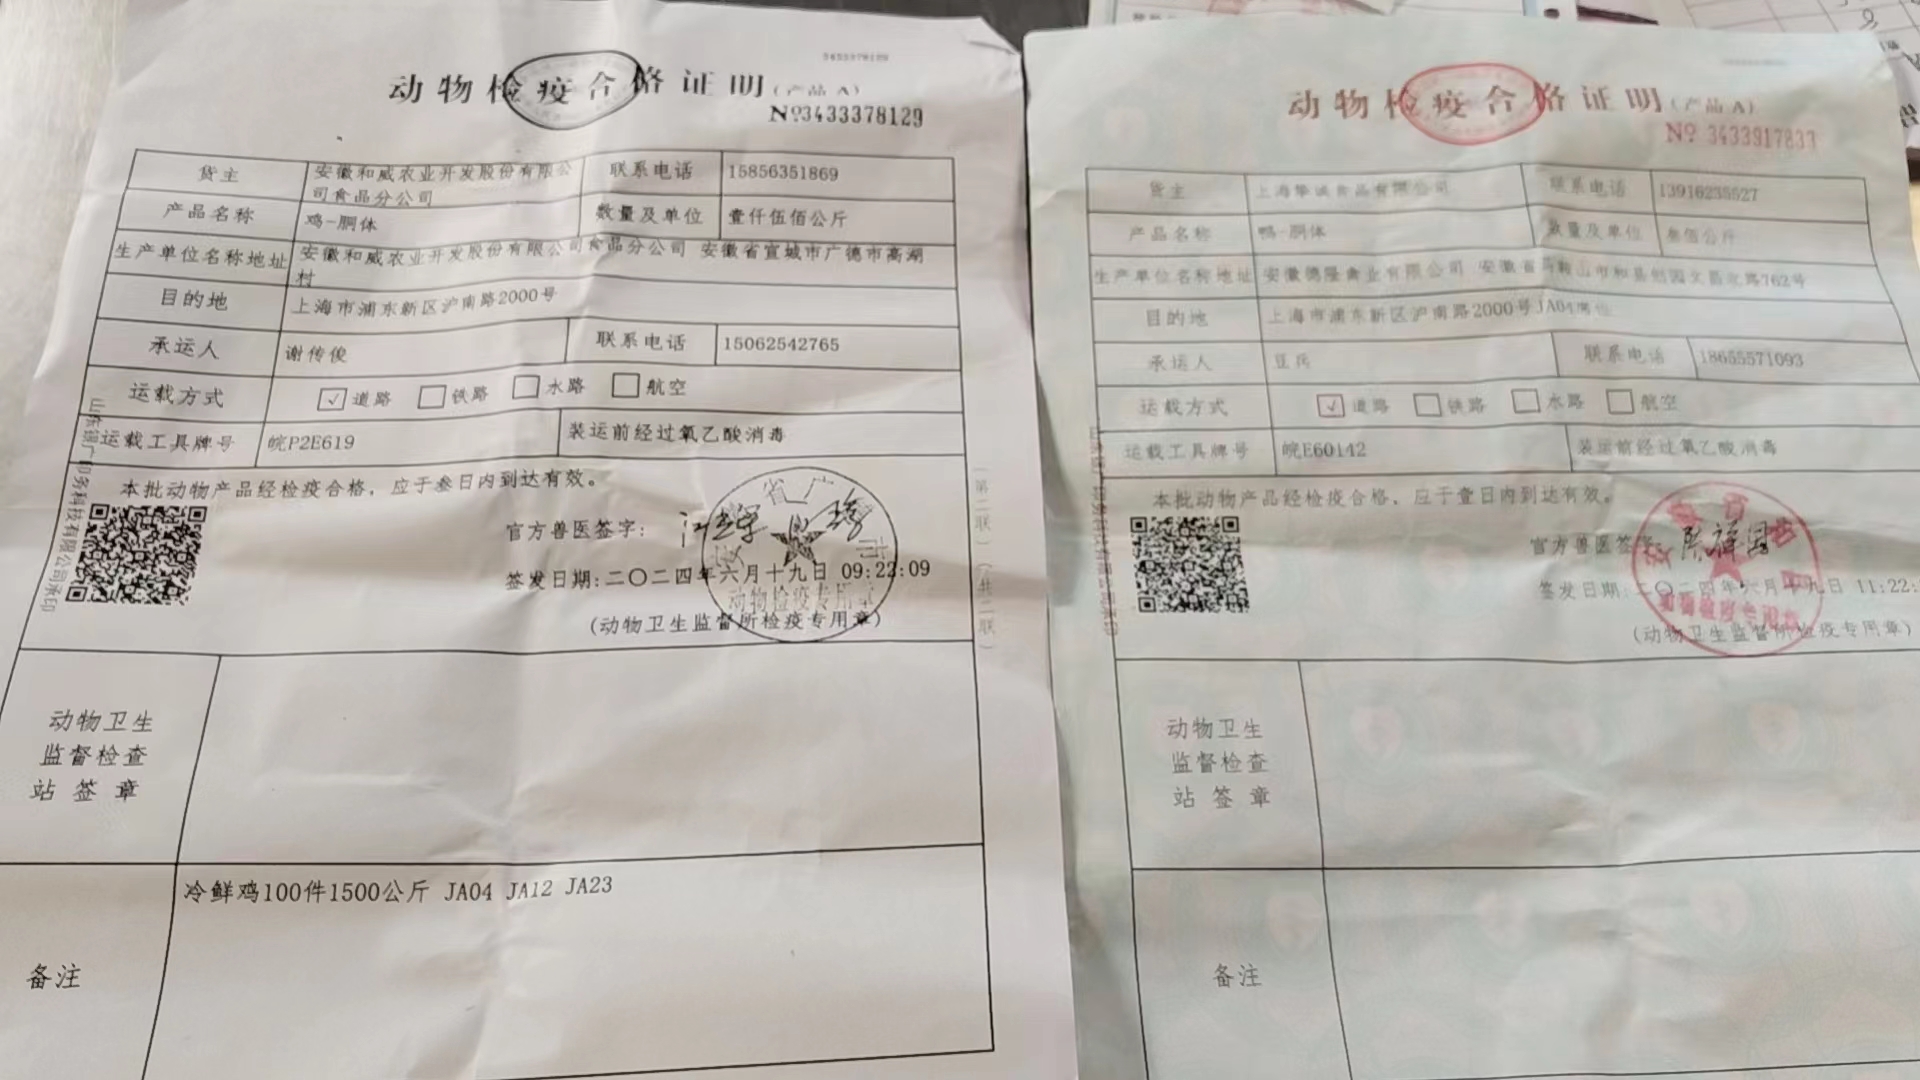 动物检疫合格证明(产品 A)
№3433378129
货主 安徽和威农业开发股份有限公
司食品分公司 联系电话 15856351869
产品名称 鸡-胴体 数量及单位 壹仟伍佰公斤
生产单位名称地址 安徽和威农业开发股份有限公司食品分公司 安徽省宣城市广德市高湖
村
目的地 上海市浦东新区沪南路2000号
承运人 谢传俊 联系电话 15062542765
运载方式 ☑道路 □铁路 □水路 □航空
运载工具牌号 皖P2E619 装运前经过氧乙酸消毒
本批动物产品经检疫合格，应于叁日内到达有效。
官方兽医签字：
签发日期:二〇二四年六月十九日 09:22:09
动物检疫专用章
(动物卫生监督所检疫专用章)
第二联（共二联）
动物卫生
监督检查
站 签 章
备注
冷鲜鸡100件1500公斤 JA04 JA12 JA23
动物检疫合格证明(产品 A)
№ 3433917833
货主 上海挚诚食品有限公司 联系电话 13916235527
产品名称 鸭-胴体 数量及单位 叁佰公斤
生产单位名称地址 安徽德隆禽业有限公司 安徽省马鞍山市和县创园文昌北路762号
目的地 上海市浦东新区沪南路2000号JA04席位
承运人 豆兵 联系电话 18655571093
运载方式 ☑道路 □铁路 □水路 □航空
运载工具牌号 皖E60142 装运前经过氧乙酸消毒
本批动物产品经检疫合格，应于壹日内到达有效。
官方兽医签字
签发日期:二〇二四年六月十九日 11:22:
(动物卫生监督所检疫专用章)
动物卫生
监督检查
站 签 章
备注